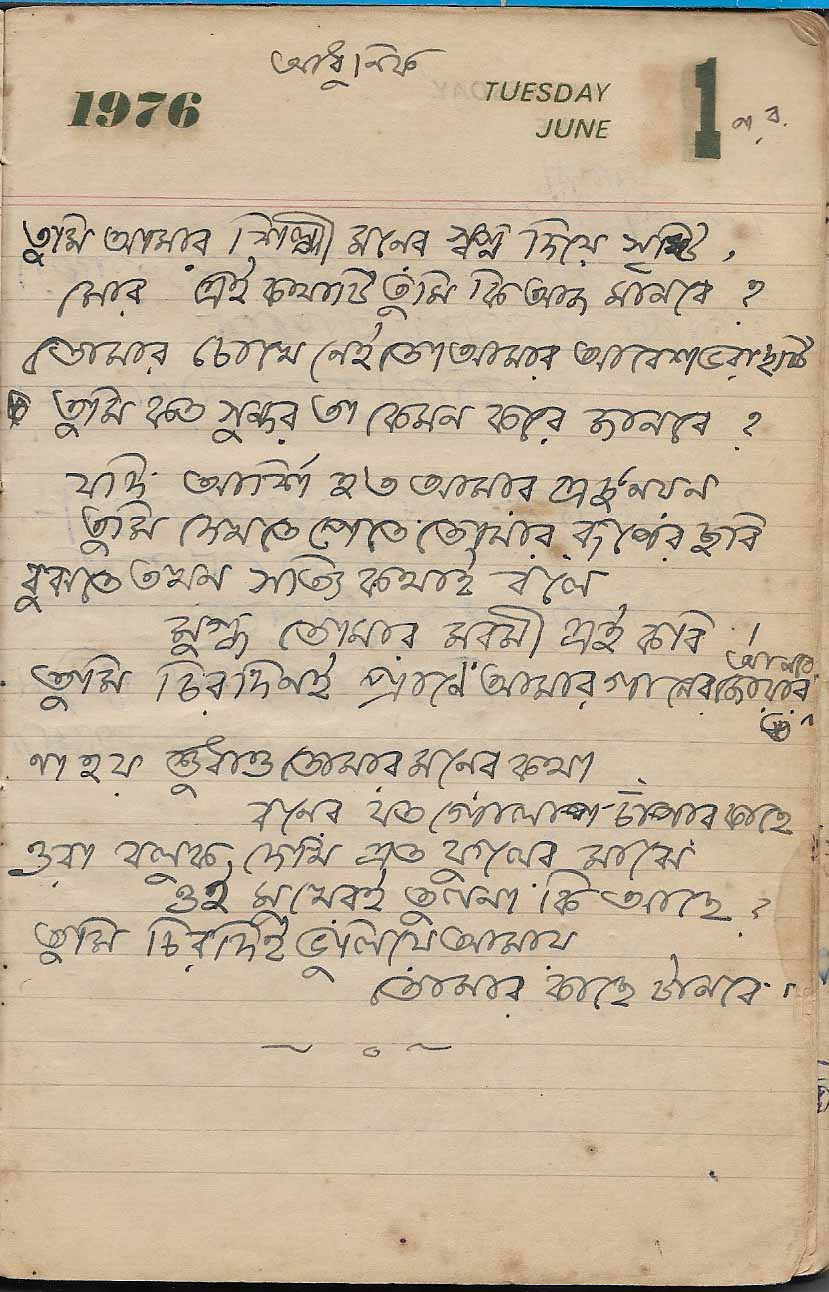 আধুনিক
1976
TUESDAY
JUNE
1
ন.ব.
তুমি আমার শিল্পী মনের স্বপ্ন দিয়ে সৃষ্টি,
মোর এই কথাটি তুমি কি আজ মানবে ?
তোমার চোখে নেই তো আমার আবেশভরা দৃষ্টি
তুমি কত সুন্দর তা কেমন করে জানবে ?
যদি আর্শি হত আমার এ দু নয়ন
তুমি দেখতে পেতে তোমার রূপের ছবি
বুঝতে তখন সত্যি কথাই বলে
মুগ্ধ তোমার মরমী এই কবি !
আনবে
তুমি চিরদিনই প্রাণে আমার গানের জোয়ার
না হয় শুধাও তোমার মনের কথা
বনের যত গোলাপ-চাঁপার কাছে
ওরা বলুক দেখি এত ফুলের মাঝে
ওই মুখেরই তুলনা কি আছে ?
তুমি চিরদিনই ভুলিয়ে আমায়
তোমার কাছে টানবে ।